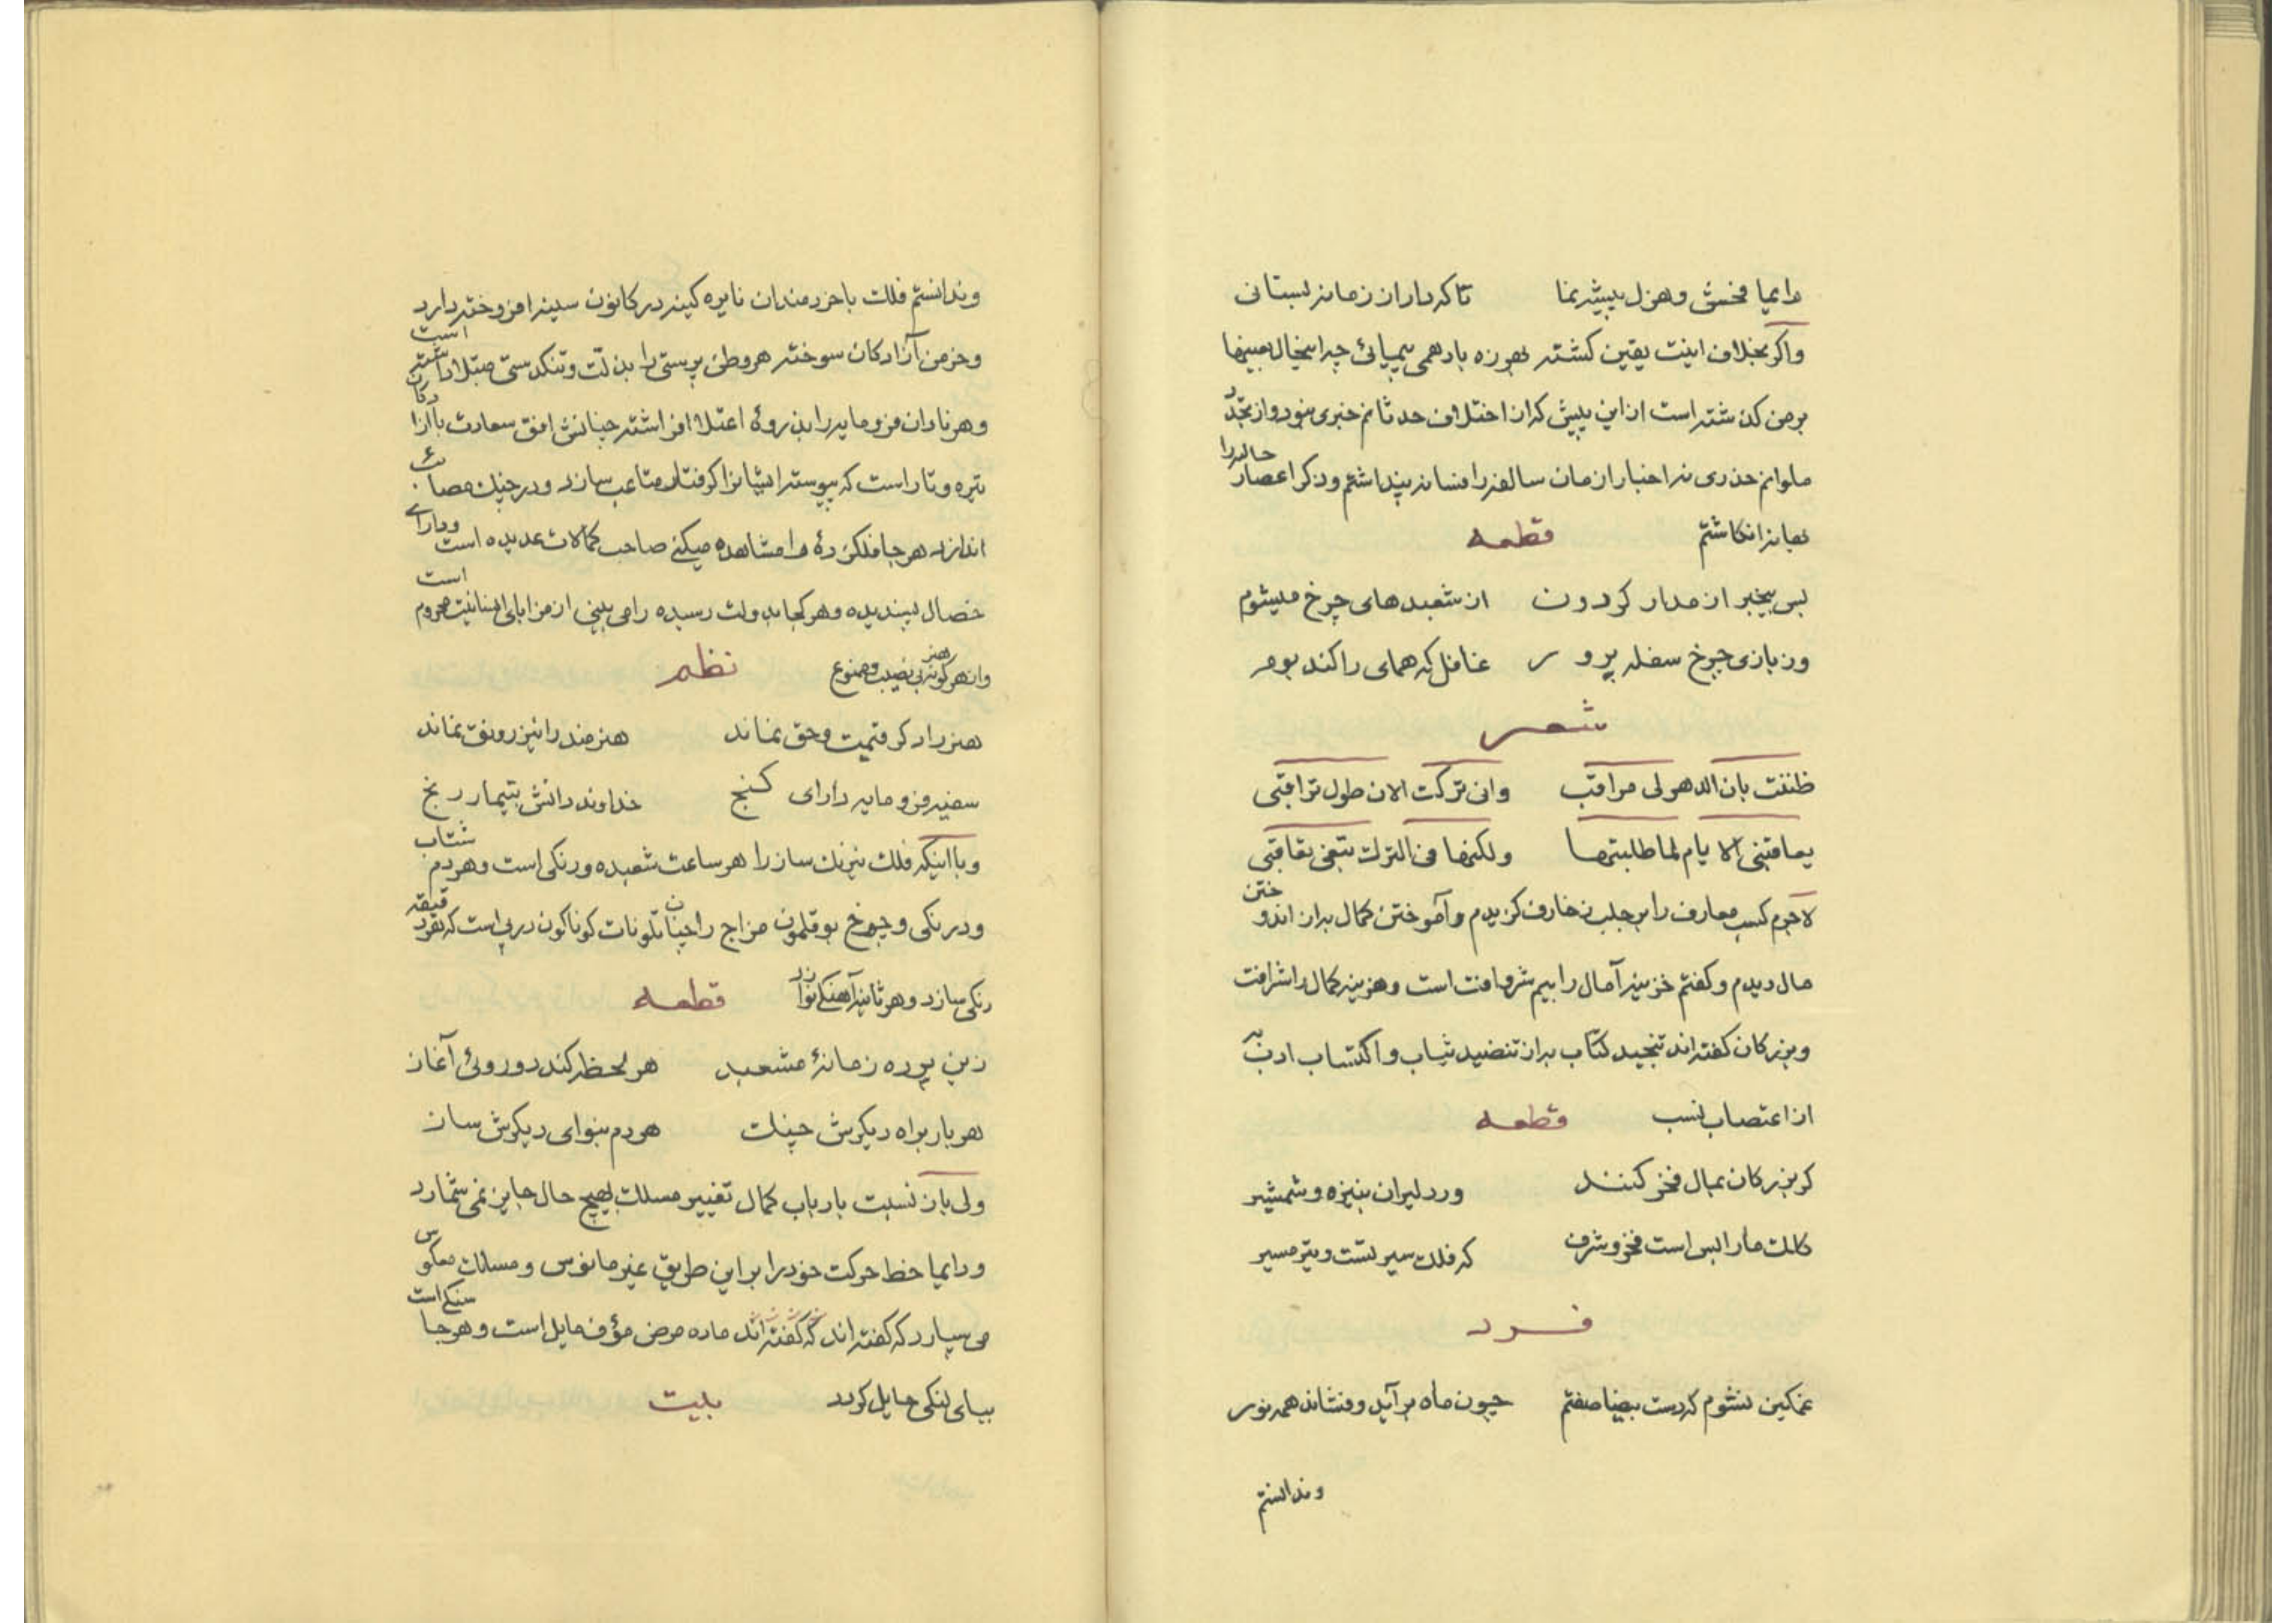 دایما فحش و هزل پیشه نما تا که داد از زمانه بستانی
واکر بخلاف اینت یقین کشته بهرزه باد همی پیمائی چه اینحال بعینها
برمن کذشته است از این پیش که از اختلاف حدثانم خبری نبود و از تجدد
ملوانم حذری نه اخبار ازمان سالفه را فسانه پنداشتم و ذکر اعصار حالیه را
بهانه انکاشتم قطعه
بس بیخبر از مدار کردون از شعبدهای چرخ میشوم
وز بازی چرخ سفله پرور غافل که همای را کند بوم
شعر
ظننت بان الدهر لی مراقب وان ترکت الان طول تراقبی
یعاقبنی الایام لما طلبتها ولکنها فی الترک تبغی تعاقبی
لاجرم کسب معارف را بر جلب زخارف کزیدم و آموختن کمال به از اندوختن
مال دیدم و کفتم خزینه آمال را بیم شر و آفت است و هزینه کمال را شرافت
و بزرکان کفته اند تنجید کتاب به از تنضید ثیاب و اکتساب ادب به
از اعتصاب نسب قطعه
کر بزرکان بمال فخر کنند ور دلیران بنیزه و شمشیر
کلک ما را بس است فخر و شرف که فلک سیر تست و تیر مسیر
فرد
غمکین نشوم که دست بیضا صفتم چون ماه برآید و فشاند همه نور
و ندانستم
و ندانستم فلک با خردمندان نایره کینه در کانون سینه افروخته دارد
و خرمن آزادکان سوخته هر وطن پرستی را بذلت و تنکدستی مبتلا داشته است
و هر نادان فرومایه را بذروهٔ اعتلا افراشته چنانش افق سعادت با آزادکان
تیره و تار است که پیوسته ایشانرا کرفتار متاعب سازد و در چنک مصائب
اندازد هر جا فلک زدهٔ را مشاهده میکنی صاحب کمالات عدیده است و دارای
خصال پسندیده و هر کجا بدولت رسیده را می بینی از مزایای انسانیت محروم است
و از هر کونه هنر بی نصیب و ممنوع نظم
هنر را دکر قیمت و حق نماند هنرمند را نیز رونق نماند
سفیه فرومایه دارای کنج خداوند دانش بتیمار رنج
و با اینکه فلک نیرنک ساز را هر ساعت شعبده و رنکی است و هر دم شتاب
و درنکی و چرخ بوقلمون مزاج را چنان تلونات کوناکون در پی است که بهر دقیقه
رنکی سازد و هر ثانیه آهنکی نوازد قطعه
زین پرده زمانهٔ مشعبد هر لحظه کند دوروئی آغاز
هر بار براه دیکرش چنک هر دم بنوای دیکرش ساز
ولی باز نسبت بارباب کمال تغییر مسلک بهیچ حال جایز نمی شمارد
و دایما خط حرکت خود را بر این طریق غیر مانوس و مسلک معکوس
می سپارد که کفته اند که کفته اند ماده مرض مؤف مایل است و هر جا سنکی است
بپای لنکی حایل کردد بیت